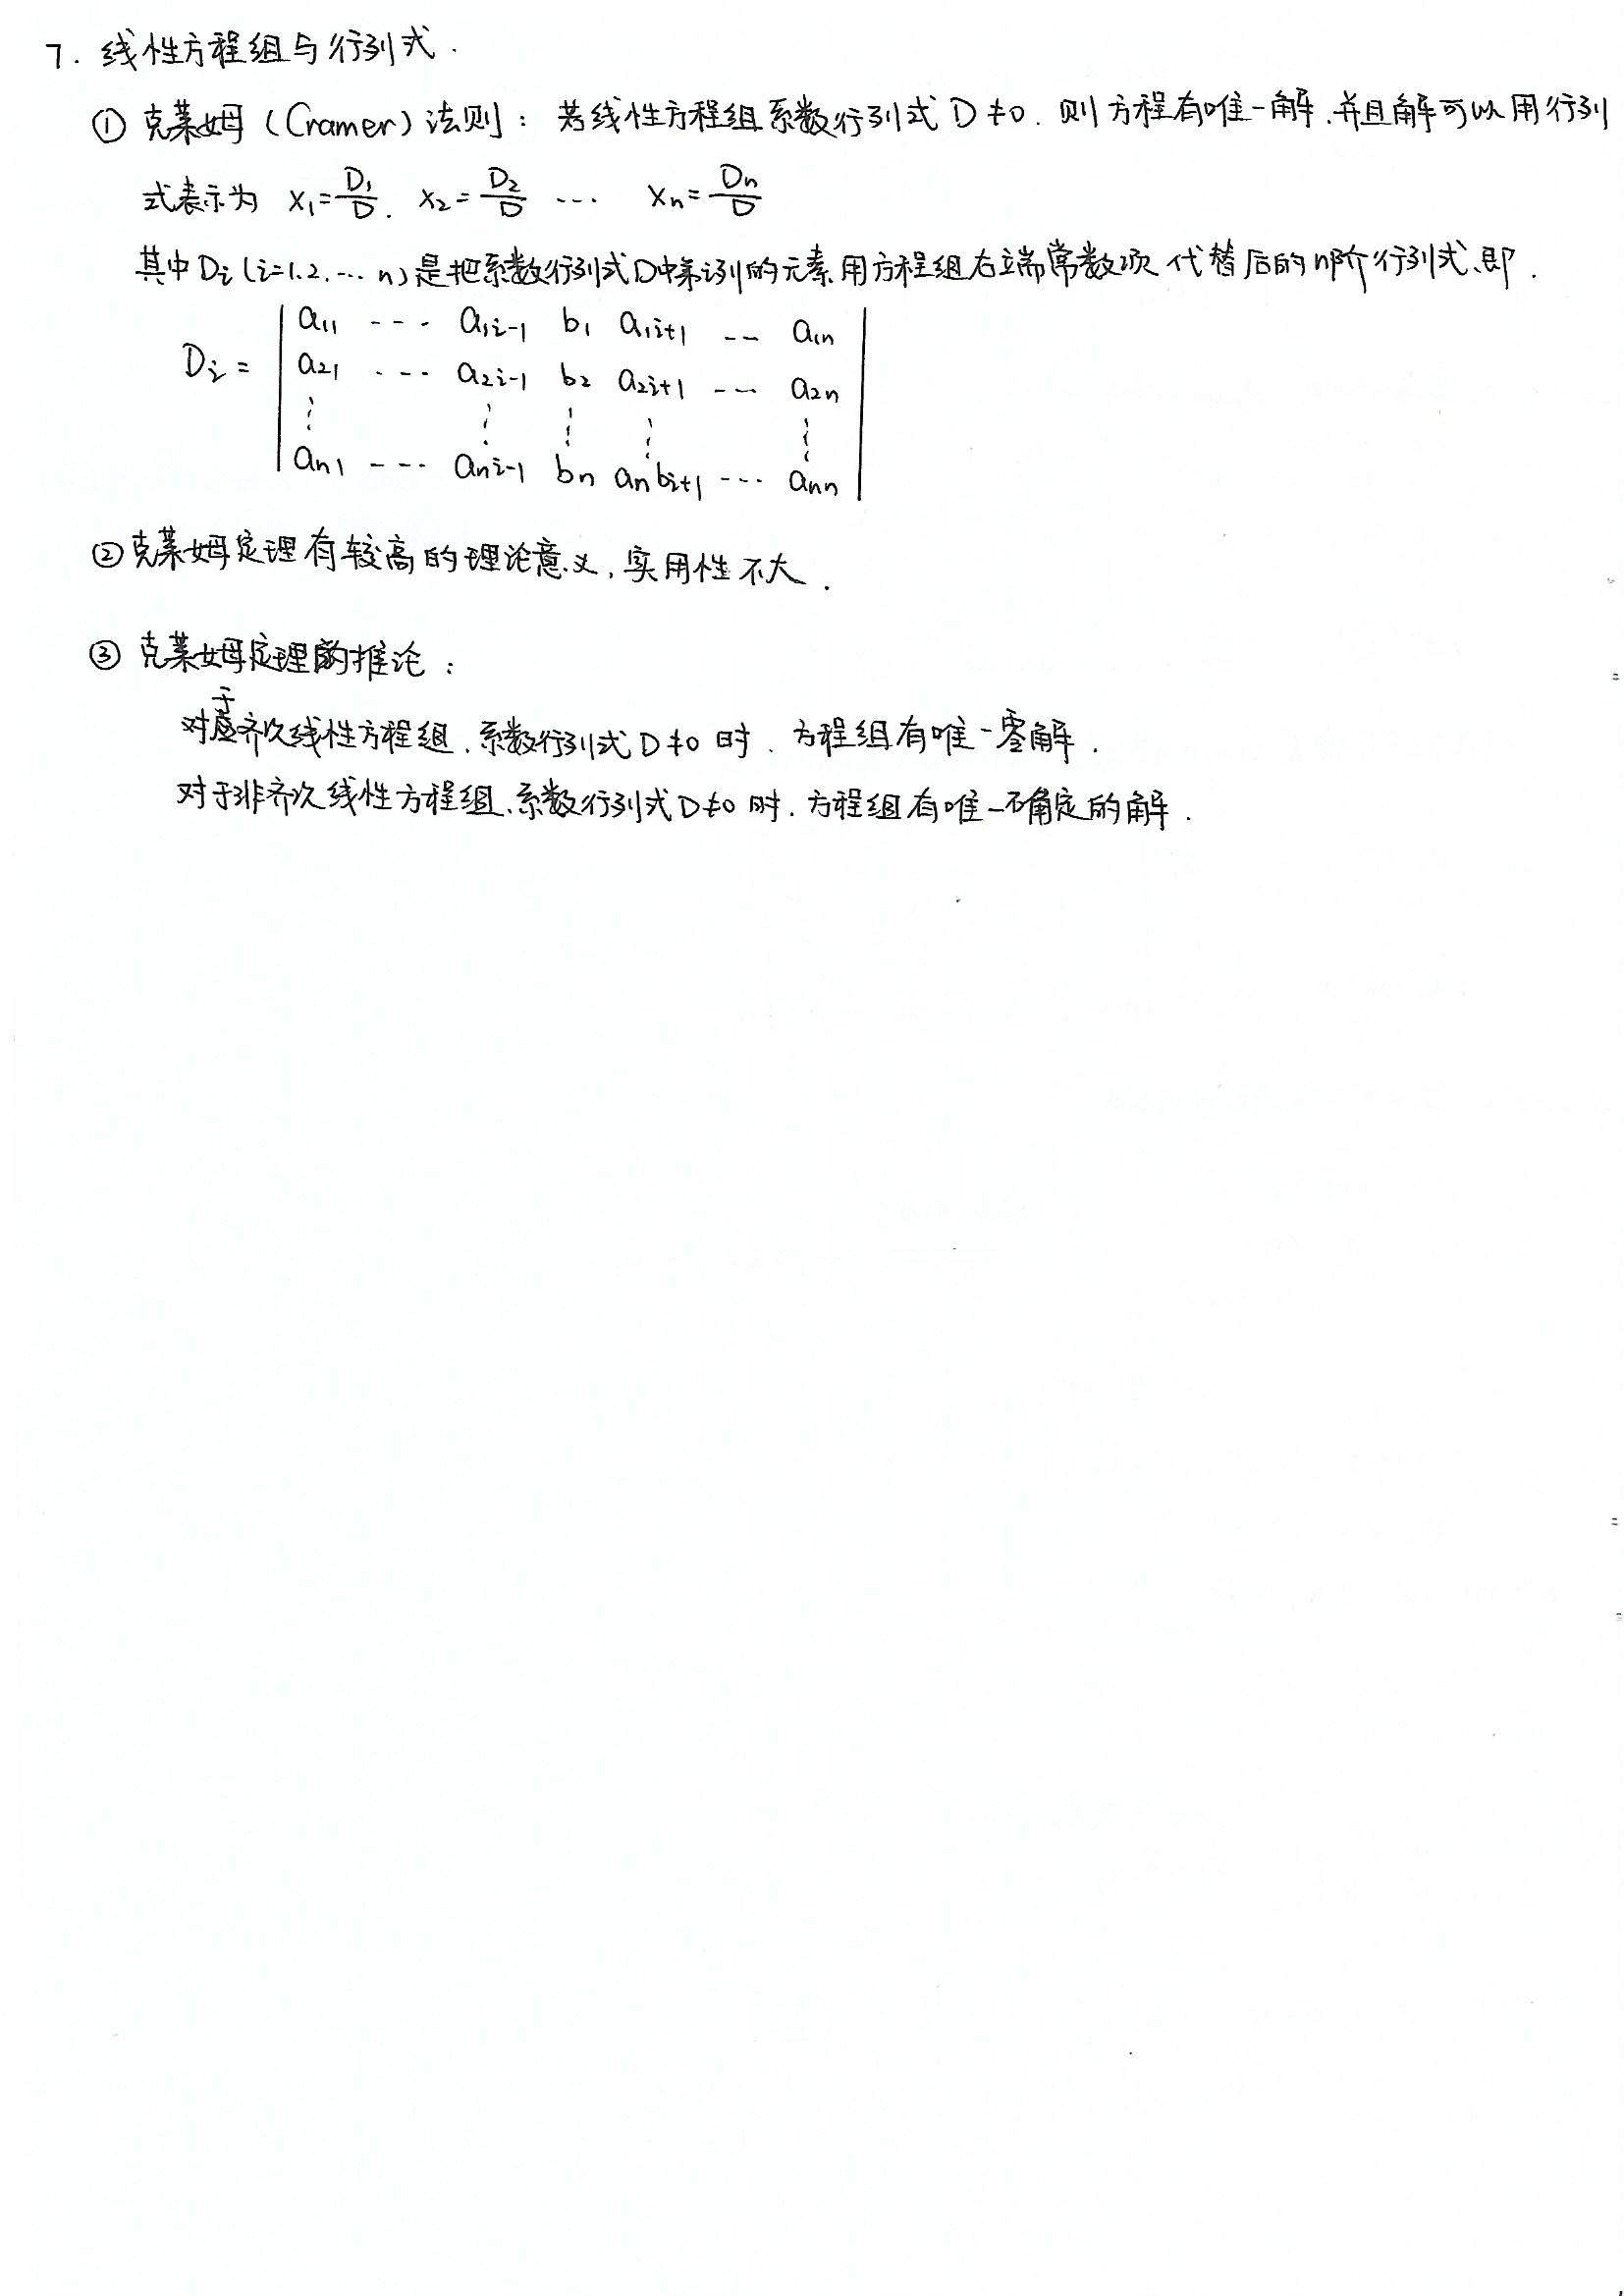 7. 线性方程组与行列式.
① 克莱姆（Cramer）法则：若线性方程组系数行列式 D≠0. 则方程有唯一解.并且解可以用行列
式表示为 x₁=D₁/D. x₂=D₂/D ... xₙ=Dₙ/D
其中Dᵢ(i=1.2.…n)是把系数行列式D中第i列的元素用方程组右端常数项代替后的n阶行列式、即.
a₁₁ --- a₁ᵢ₋₁ b₁ a₁ᵢ₊₁ -- a₁ₙ
Dᵢ= a₂₁ --- a₂ᵢ₋₁ b₂ a₂ᵢ₊₁ --- a₂ₙ
⋮ ⋮ ⋮ ⋮ ⋮
aₙ₁ --- aₙᵢ₋₁ bₙ aₙbᵢ₊₁ --- aₙₙ
②克莱姆定理有较高的理论意义,实用性不大.
③ 克莱姆定理的推论：
对于齐次线性方程组.系数行列式D≠0时.方程组有唯一零解.
对于非齐次线性方程组.系数行列式D≠0时.方程组有唯一确定的解.